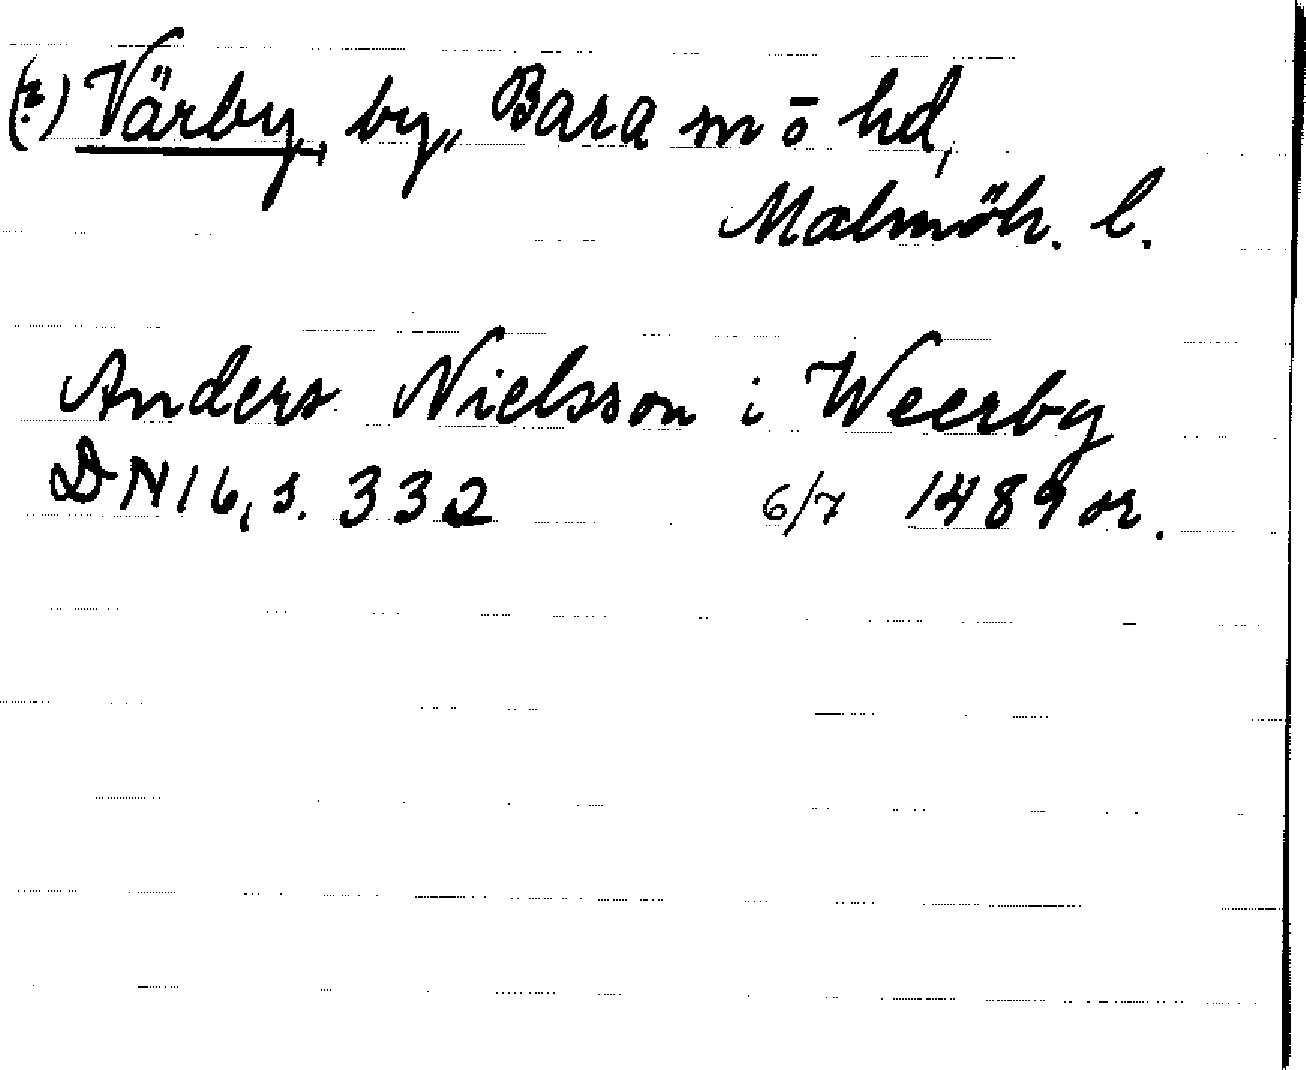 (?) Värby, by, Bara sn o hd,
Malmöh. l.
Anders Nielsson i Weerby
DN 16, s. 332 6/7 1489 or.